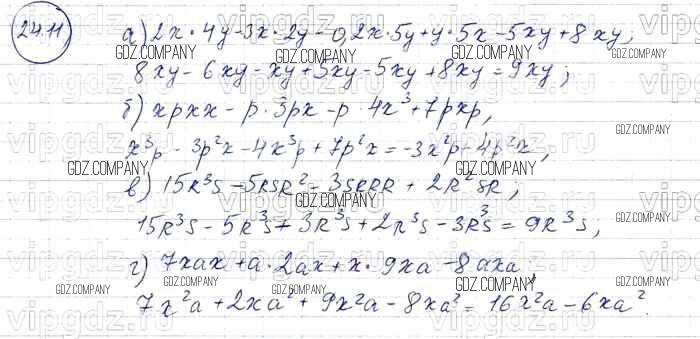 24.11
а) 2x · 4y - 3x · 2y - 0,2x · 5y + y · 5x - 5xy + 8xy;
8xy - 6xy - xy + 5xy - 5xy + 8xy = 9xy;
б) xpxx - p · 3px - p · 4x³ + 7pxp,
x³p - 3p²x - 4x³p + 7p²x = -3x³p + 4p²x,
в) 15R³S - 5RSR² - 3SRRR + 2R²SR;
15R³S - 5R³S + 3R³S + 2R³S - 3RS³ = 9R³S;
г) 7xax + a · 2ax + x · 9xa - 8axa
7x²a + 2xa² + 9x²a - 8xa² = 16x²a - 6xa².
GDZ.COMPANY
vipgdz.ru